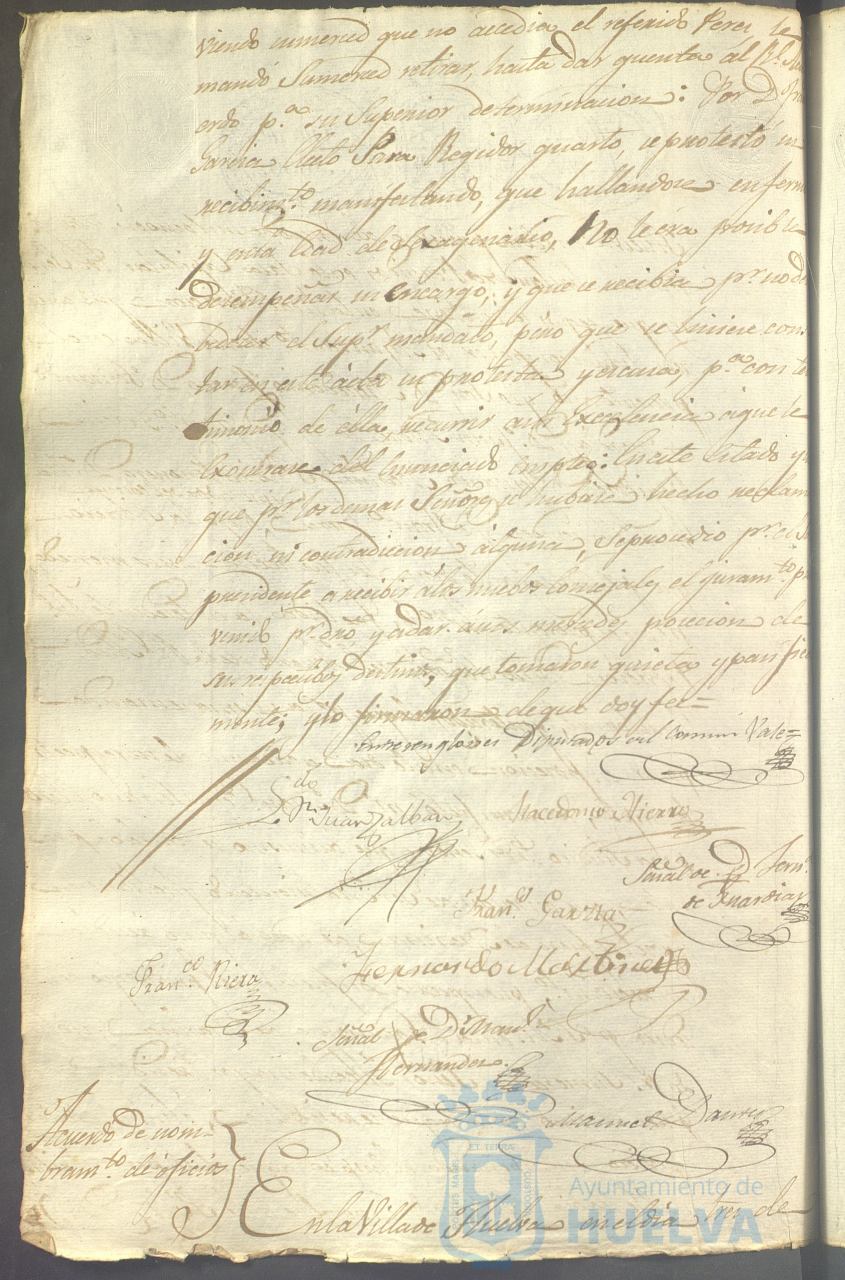 viendo sumerced que no accedia el referido Perez le
mandó Sumerced retirar, hasta dar quenta al Rl. Acu
erdo p.ª su Superior determinacion: Por Dn. Fran
Garcia electo Para Regidor quarto, se protestó su
recibim.to manifestando, que hallandose enferm
y en la edad de Sexagenario, No le era posible
desempeñar su encargo, y que se recibia pr. no de
el Supr. mandato, pero que se hiciese cons
tar en este acta su protesta y escusa, p.ª con tes
timonio de ella, recurrir a su Excelencia a que le
del enunciado empleo: En este estado y
que pr. los demas Señores se hubiese hecho reclam
cion ni contradiccion alguna, Se procedio pr. el Sr
presidente a recibir a los nuebos Consejales el juram.to pre
venido pr. dro y a dar a sus mercedes posecion de
sus respectibos destinos, que tomaron quieta y pacifica
mente; y lo firmaron de que doy fe=
Entrerenglones Diputados del Comun Vale=
Macedonio Hierro
Señal de Dn. Fern.
de
Fran.co Garzia
Fernando Martinez
Fran.co Riera
Señal de Dn. Man.l
Hernandez
Manuel
Acuerdo de nom-
bram.to de oficios
En la Villa de Huelva en el dia tres de
ET TERRAE
Ayuntamiento de
HUELVA